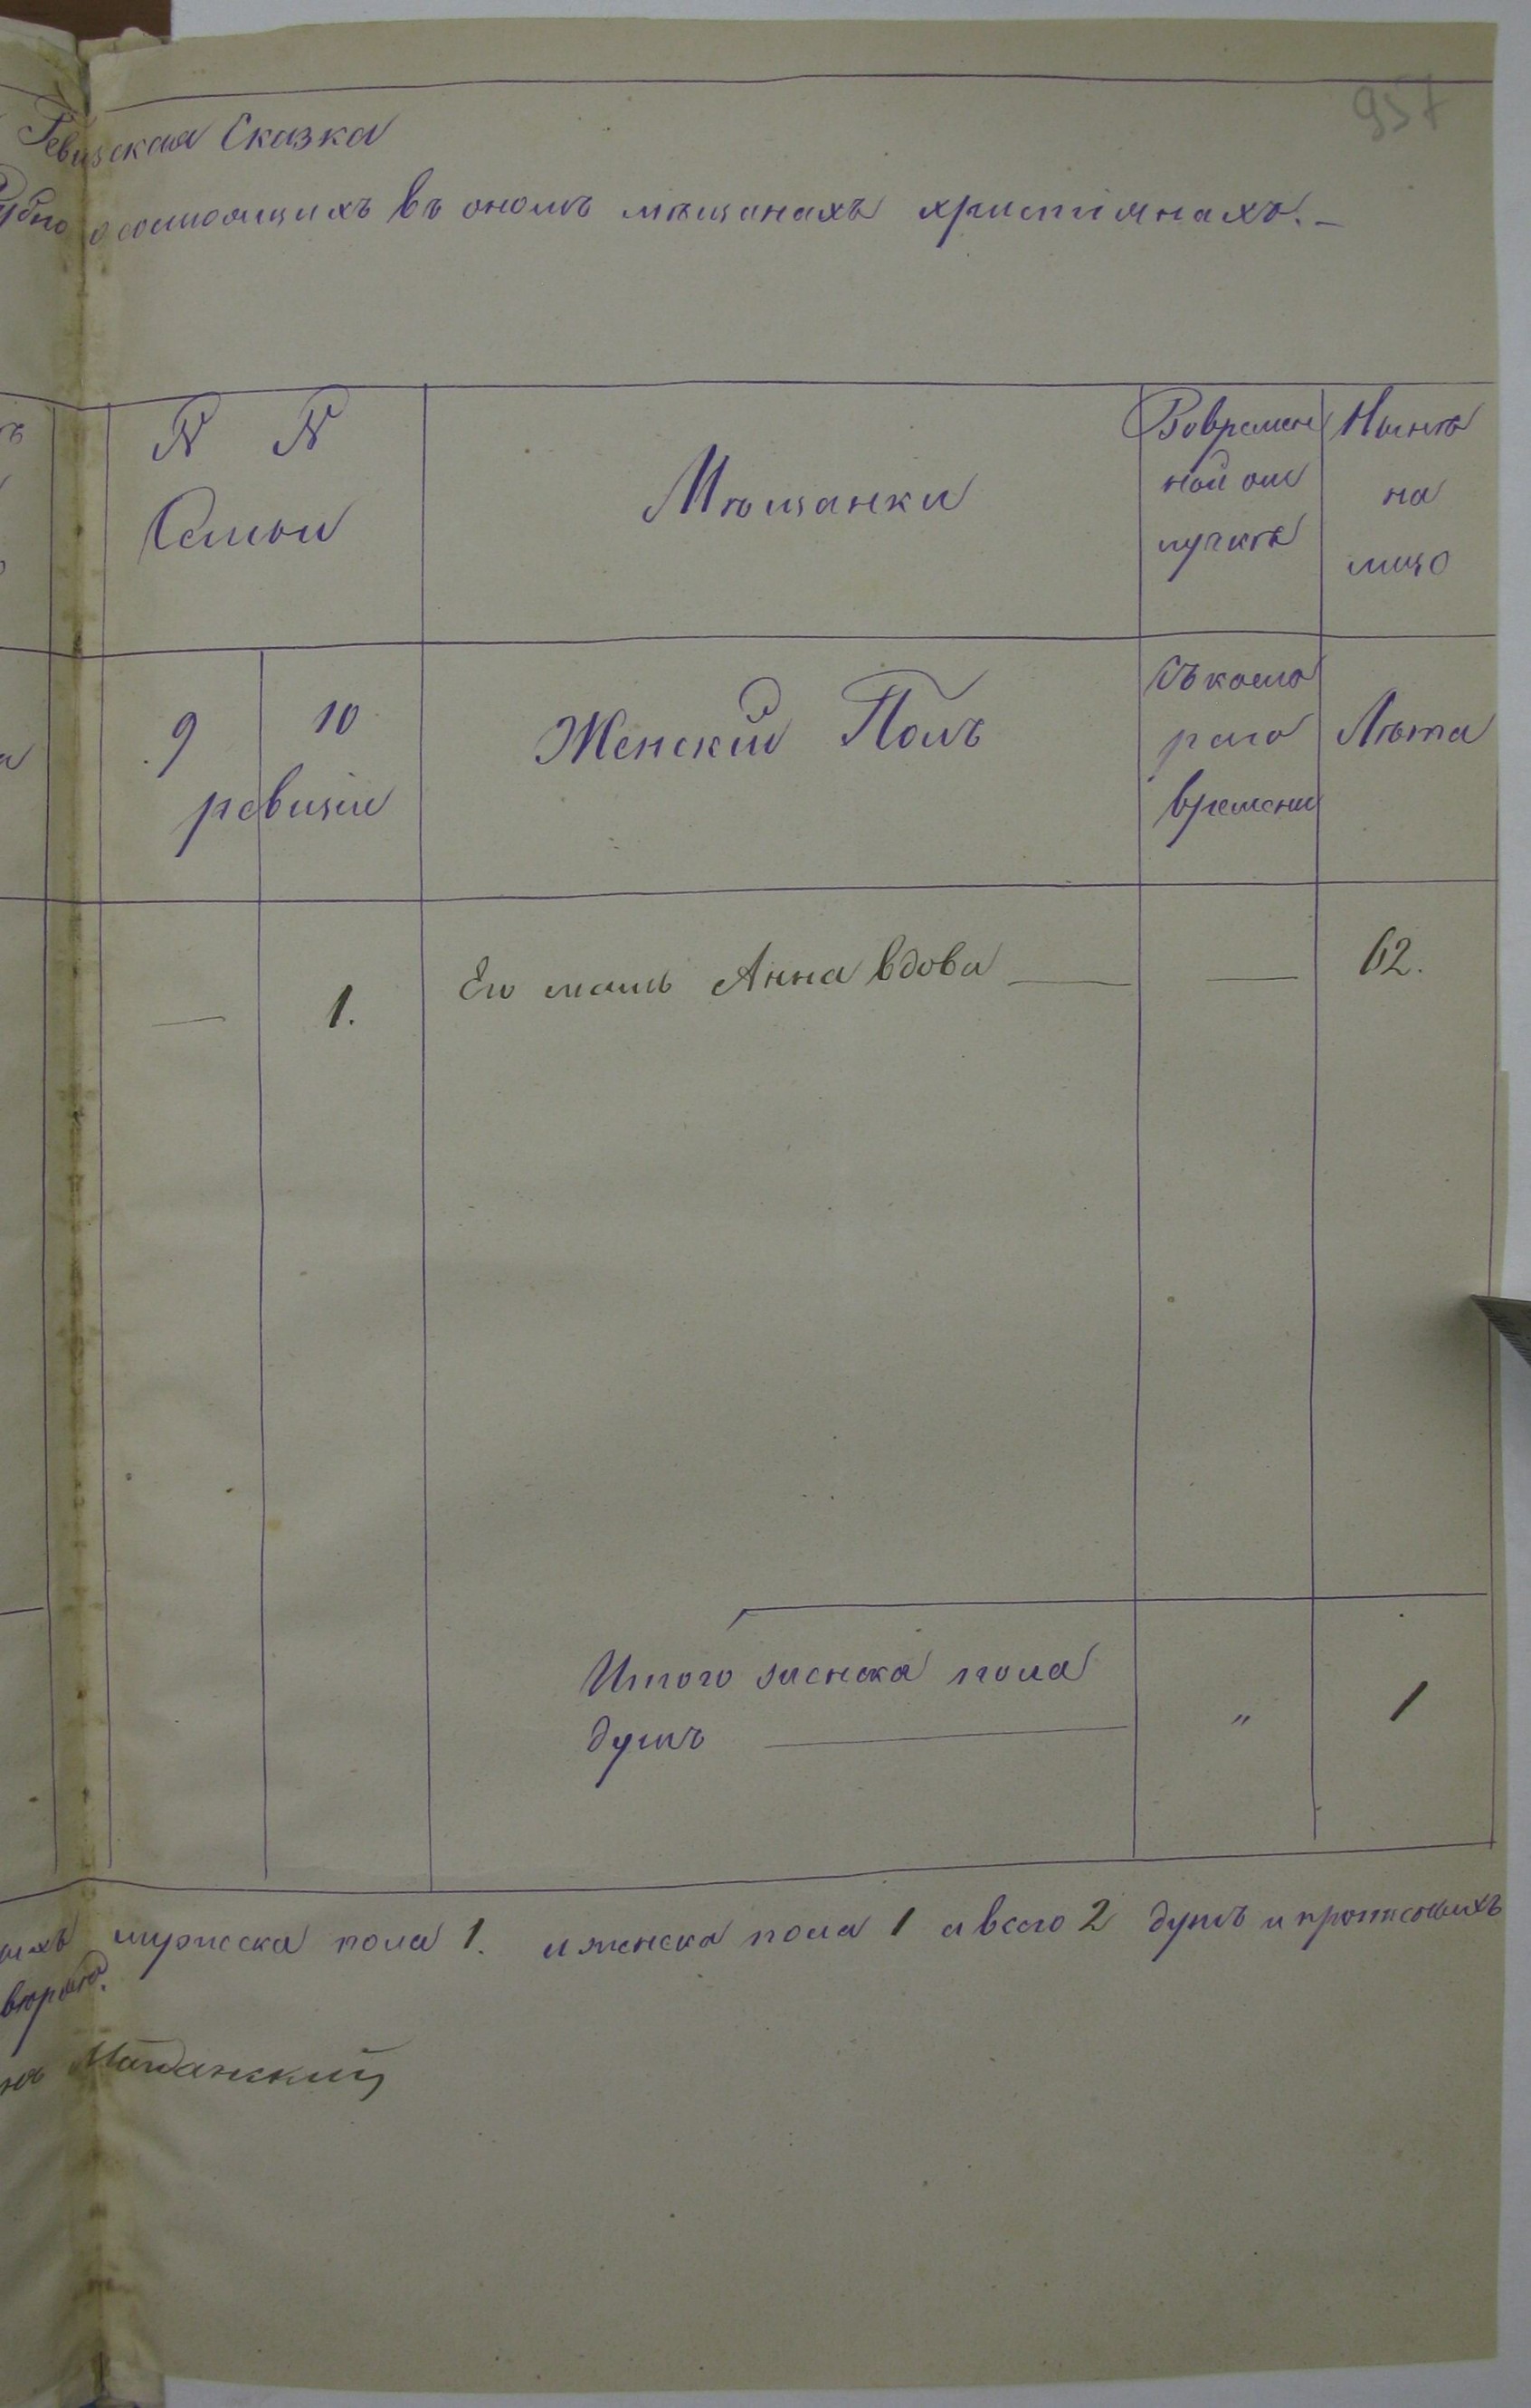 957
Ревизская Сказка
о состоящихъ въ ономъ мѣщанахъ христіянахъ.-
N N
Семьи
Мѣщанки
Вовремен
ной от
лучкѣ
Нынѣ
на
лицо
9 10
ревизіи
Женскій Полъ
Съ кото
раго
времени
Лѣта
— 1. Его мать Анна вдова — — 62.
Итого женска пола
душъ — " 1
мужеска пола 1. и женска пола 1 а всего 2 душъ и